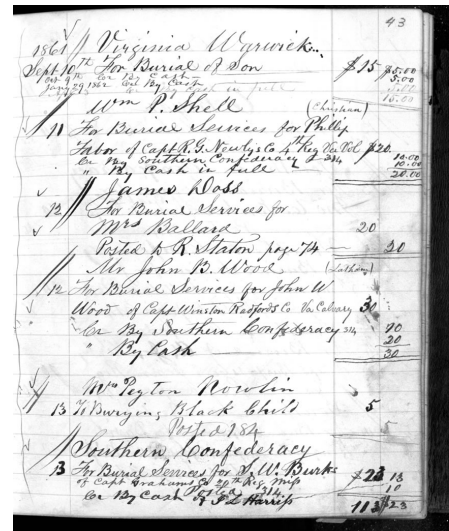 43
1861 Virginia Warwick
Sept 10th For Burial of Son $15 $5.00
Cr By Cash 5.00
Jany 29 1862 Cr By Cash
By Cash in full
15.00
Wm P. Shell (Christian)
11 For Burial Services for Phillip
Tabor of Capt R. G. Co 4th Reg Va Vol $20.
Cr By Southern Confederacy 314 10.00
" By Cash in full 10.00
20.00
James Doss
12 For Burial Services for
Mrs Ballard 20
Posted to R. Staton page 74 — 20
Mr John B. Wood
12 For Burial Services for John W
Wood of Capt Winston Radfords Co Va Calvary 30
" Cr By Southern Confederacy 314 10
" By Cash 20
30
Mrs Peyton Nowlin
13 To Burying Black Child 5
Posted 184 5
Southern Confederacy
13 For Burial Services for S. W. Burks $23 13
of Capt Grahams Co 20th Reg Miss 10
Cr By Cash of J L Harriss
113 $23